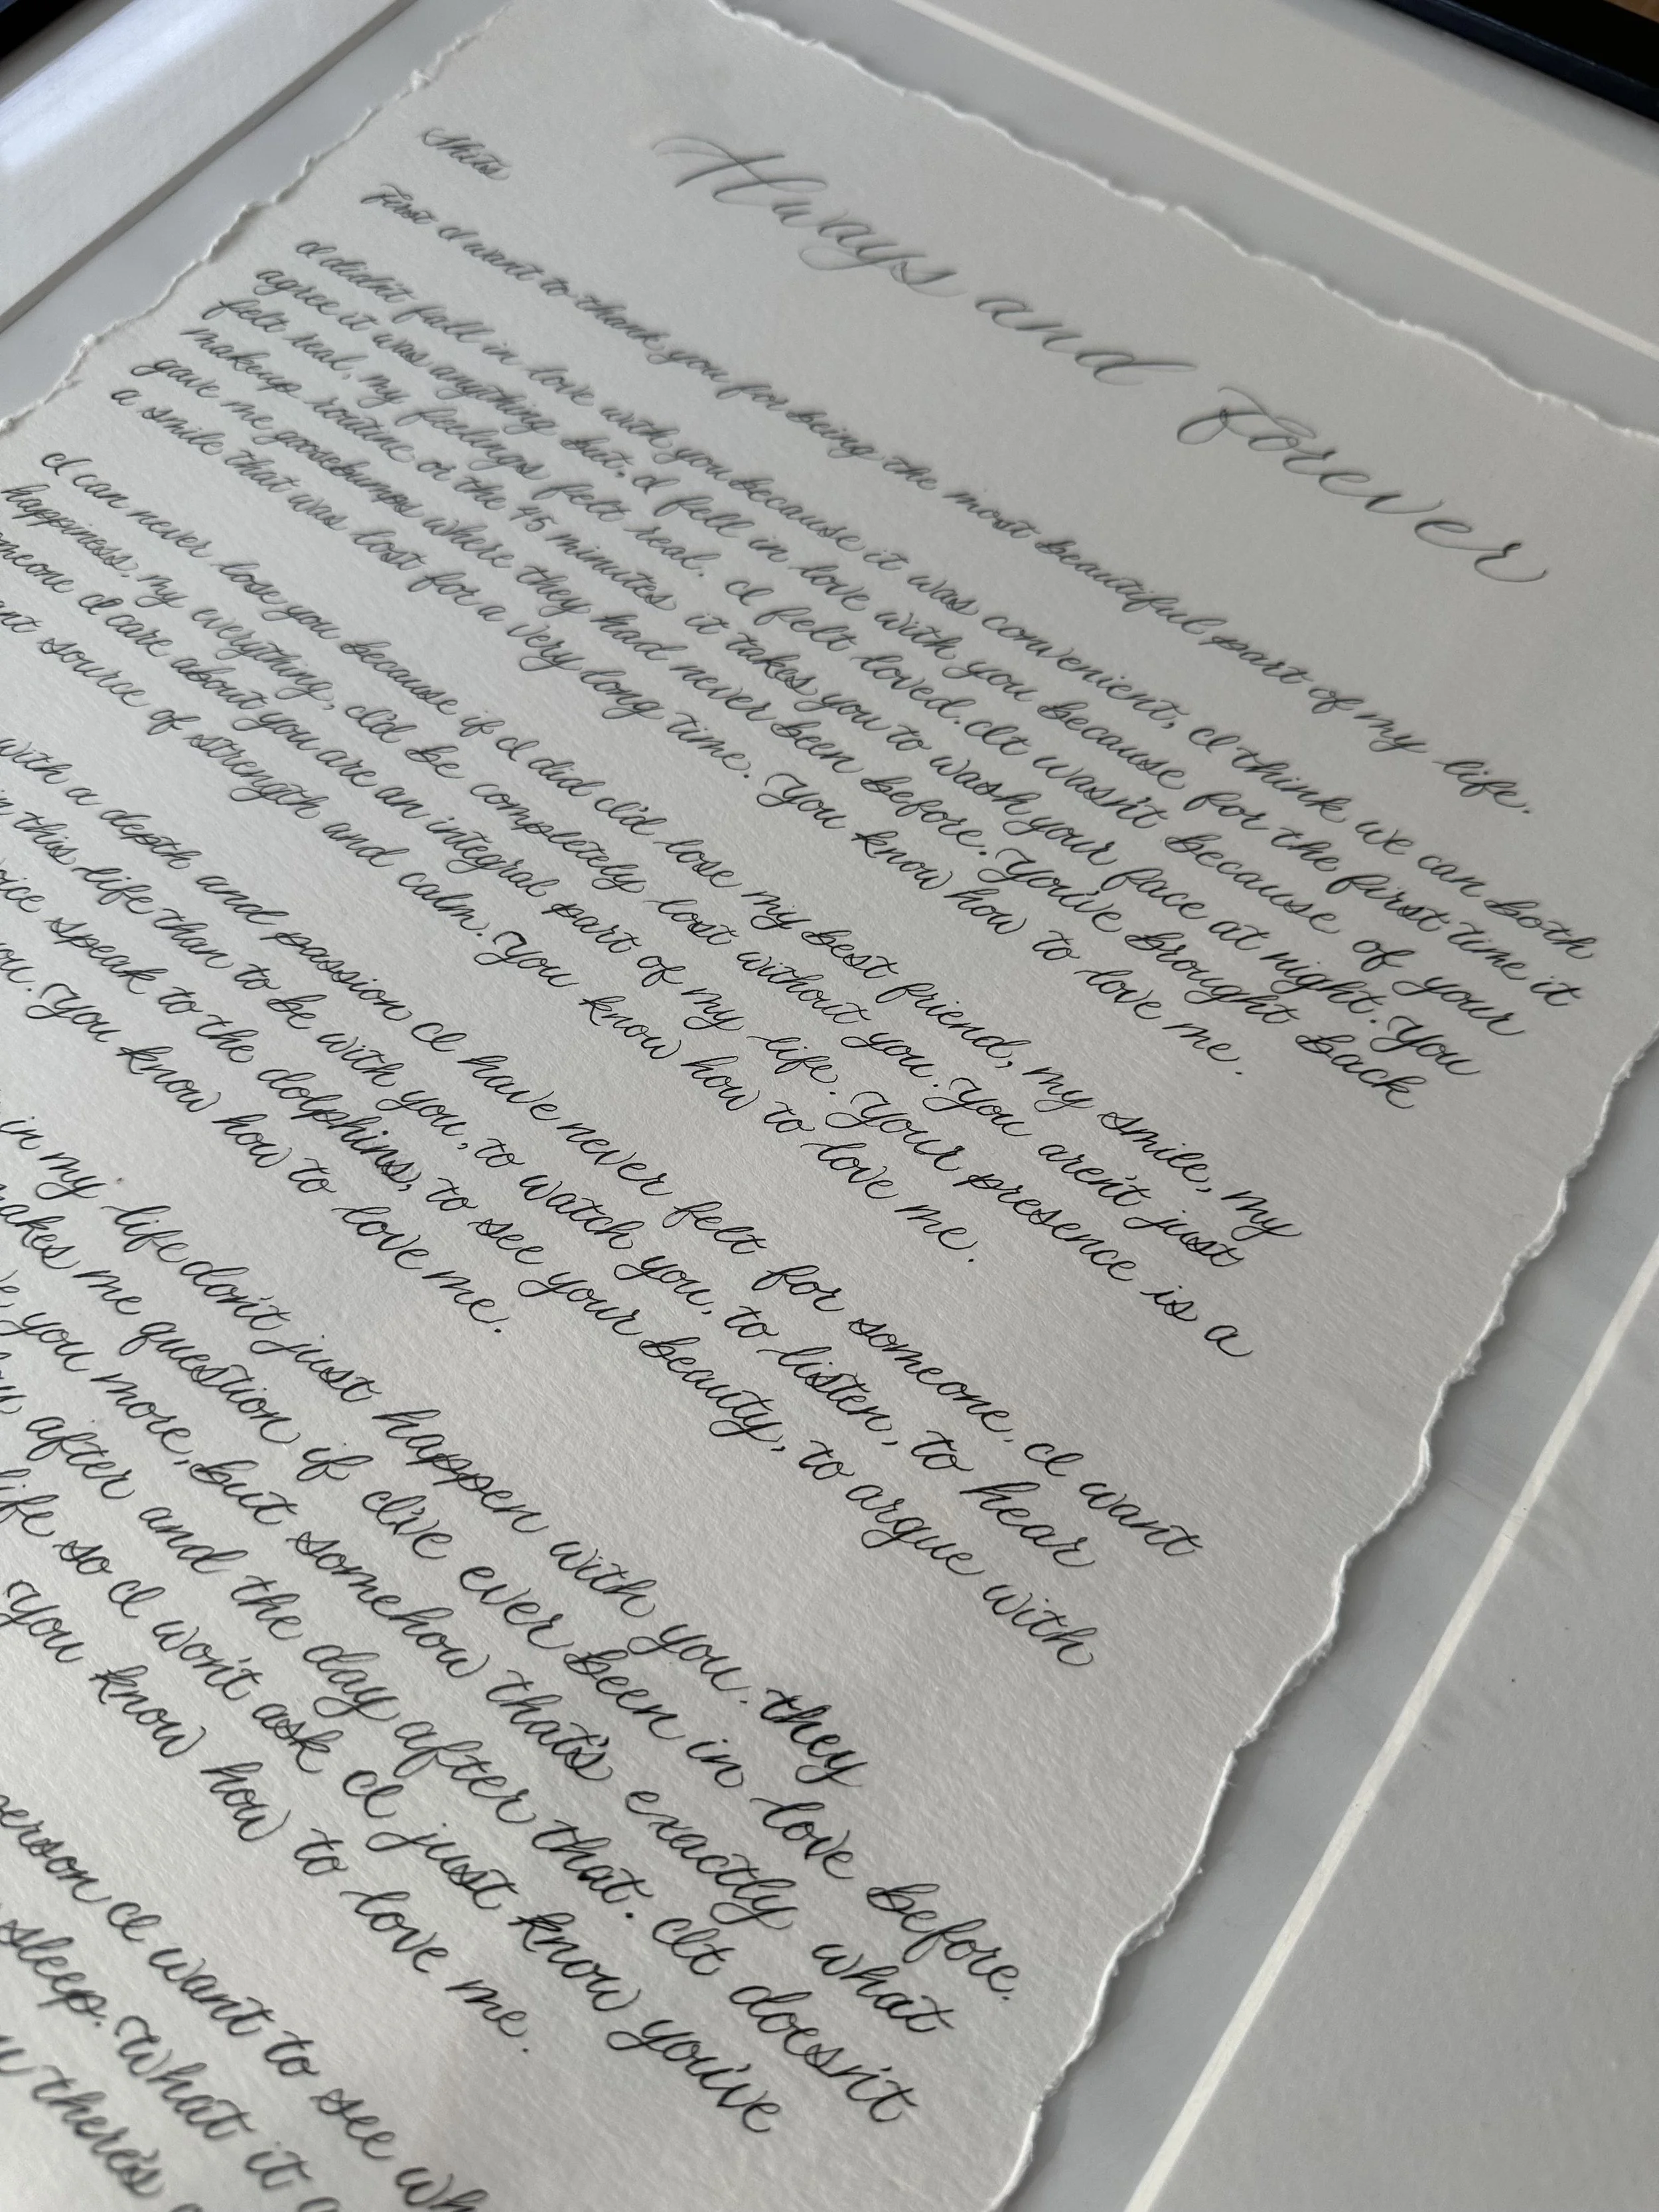 Always and Forever
First I want to thank you for being the most beautiful part of my life.
I didn't fall in love with you because it was convenient, I think we can both
agree it was anything but. I fell in love with you because for the first time it
felt real, my feelings felt real. I felt loved. It wasn't because of your
makeup routine or the 45 minutes it takes you to wash your face at night. You
gave me goosebumps where they had never been before. You've brought back
a smile that was lost for a very long time. You know how to love me.
I can never lose you because if I did I'd lose my best friend, my smile, my
happiness, my everything, I'd be completely lost without you. You aren't just
someone I care about you are an integral part of my life. Your presence is a
source of strength and calm. You know how to love me.
with a depth and passion I have never felt for someone. I want
in this life than to be with you, to watch you, to listen, to hear
speak to the dolphins, to see your beauty, to argue with
you. You know how to love me.
in my life don't just happen with you. they
makes me question if I've ever been in love before.
you more, but somehow that's exactly what
after and the day after that. It doesn't
life so I won't ask I just know you've
You know how to love me.
person I want to see
sleep. What it
there's